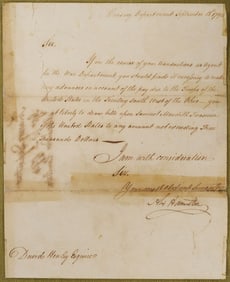 Treasury Department
Sir,
If in the course of your transactions as Agent
for the War Department you should find it necessary to make
any advances on account of the pay due to the Troops of the
United States in the Territory South West of the Ohio, you
are at liberty to draw bills upon Samuel Meredith Treasurer
of the United States to any amount not exceeding Three
thousand Dollars.
I am with consideration
Sir,
Your most Obedient Servant
Alex Hamilton
David Henley Esquire